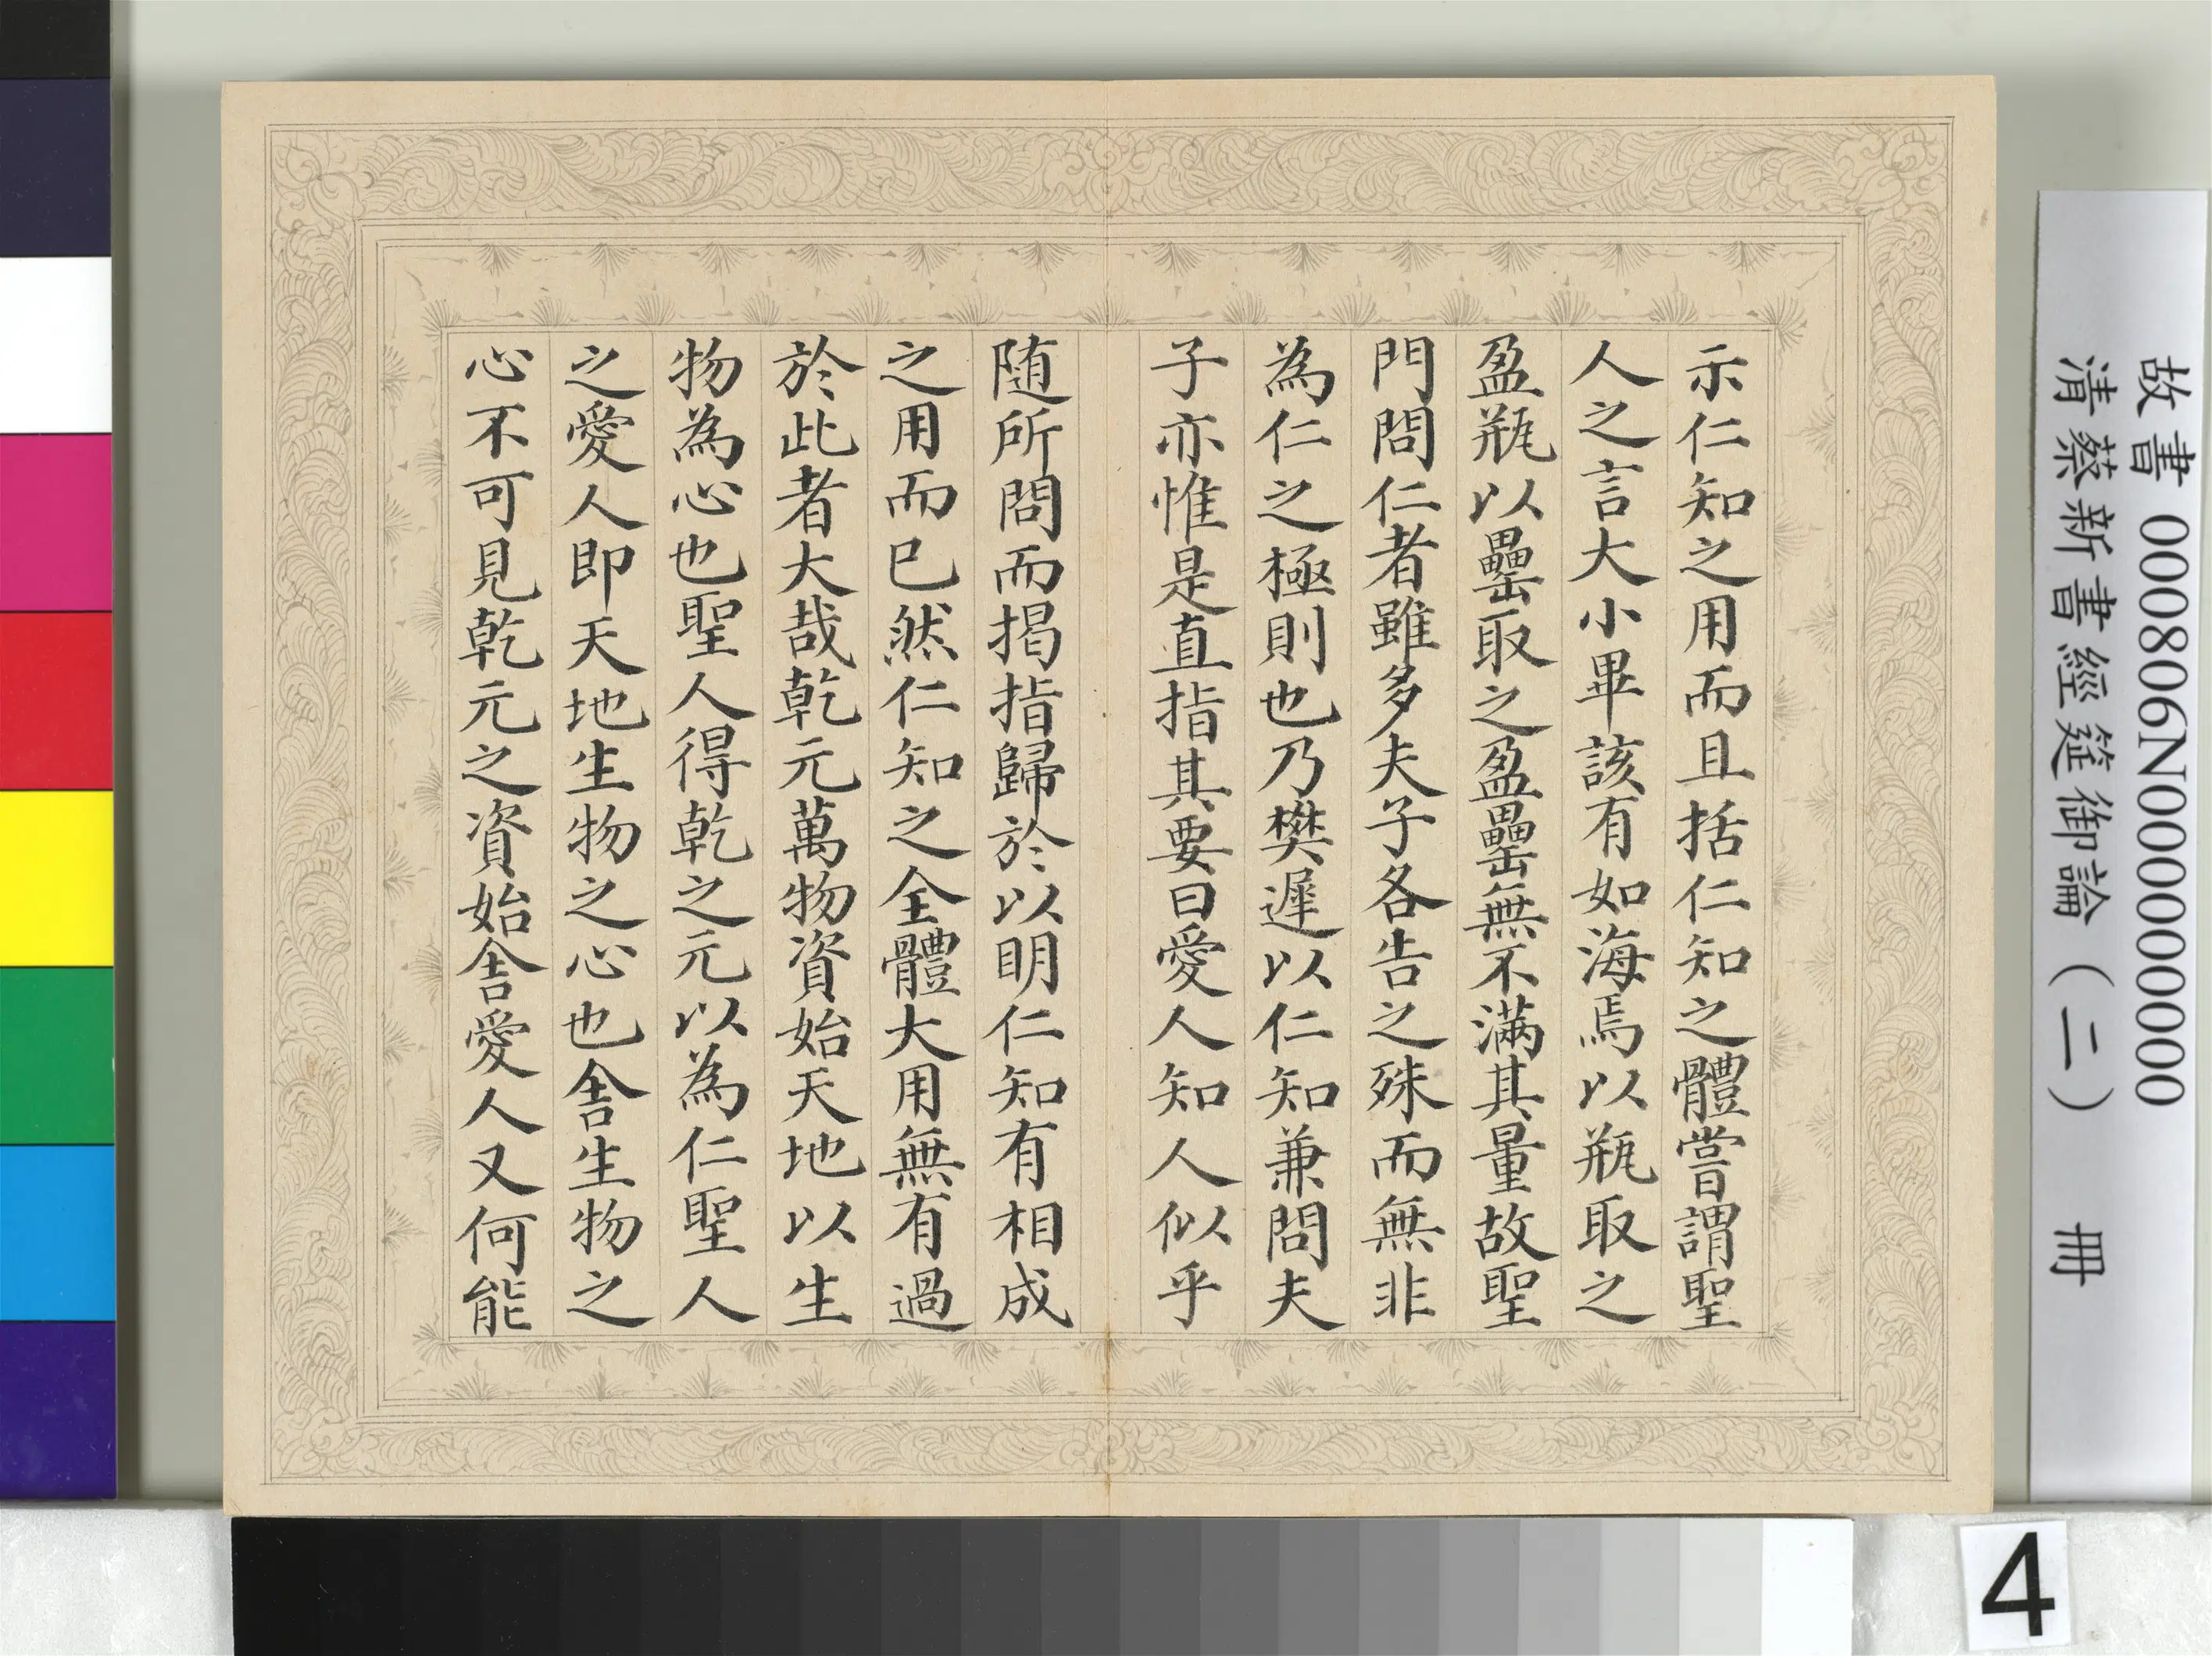 故書 000806N000000000
清蔡新書經筵御論（二） 冊
示仁知之用而且括仁知之體嘗謂聖
人之言大小畢該有如海焉以瓶取之
盈瓶以罍取之盈罍無不滿其量故聖
門問仁者雖多夫子各告之殊而無非
為仁之極則也乃樊遲以仁知兼問夫
子亦惟是直指其要曰愛人知人似乎
随所問而揭指歸於以明仁知有相成
之用而已然仁知之全體大用無有過
於此者大哉乾元萬物資始天地以生
物為心也聖人得乾之元以為仁聖人
之愛人即天地生物之心也舎生物之
心不可見乾元之資始舎愛人又何能
4